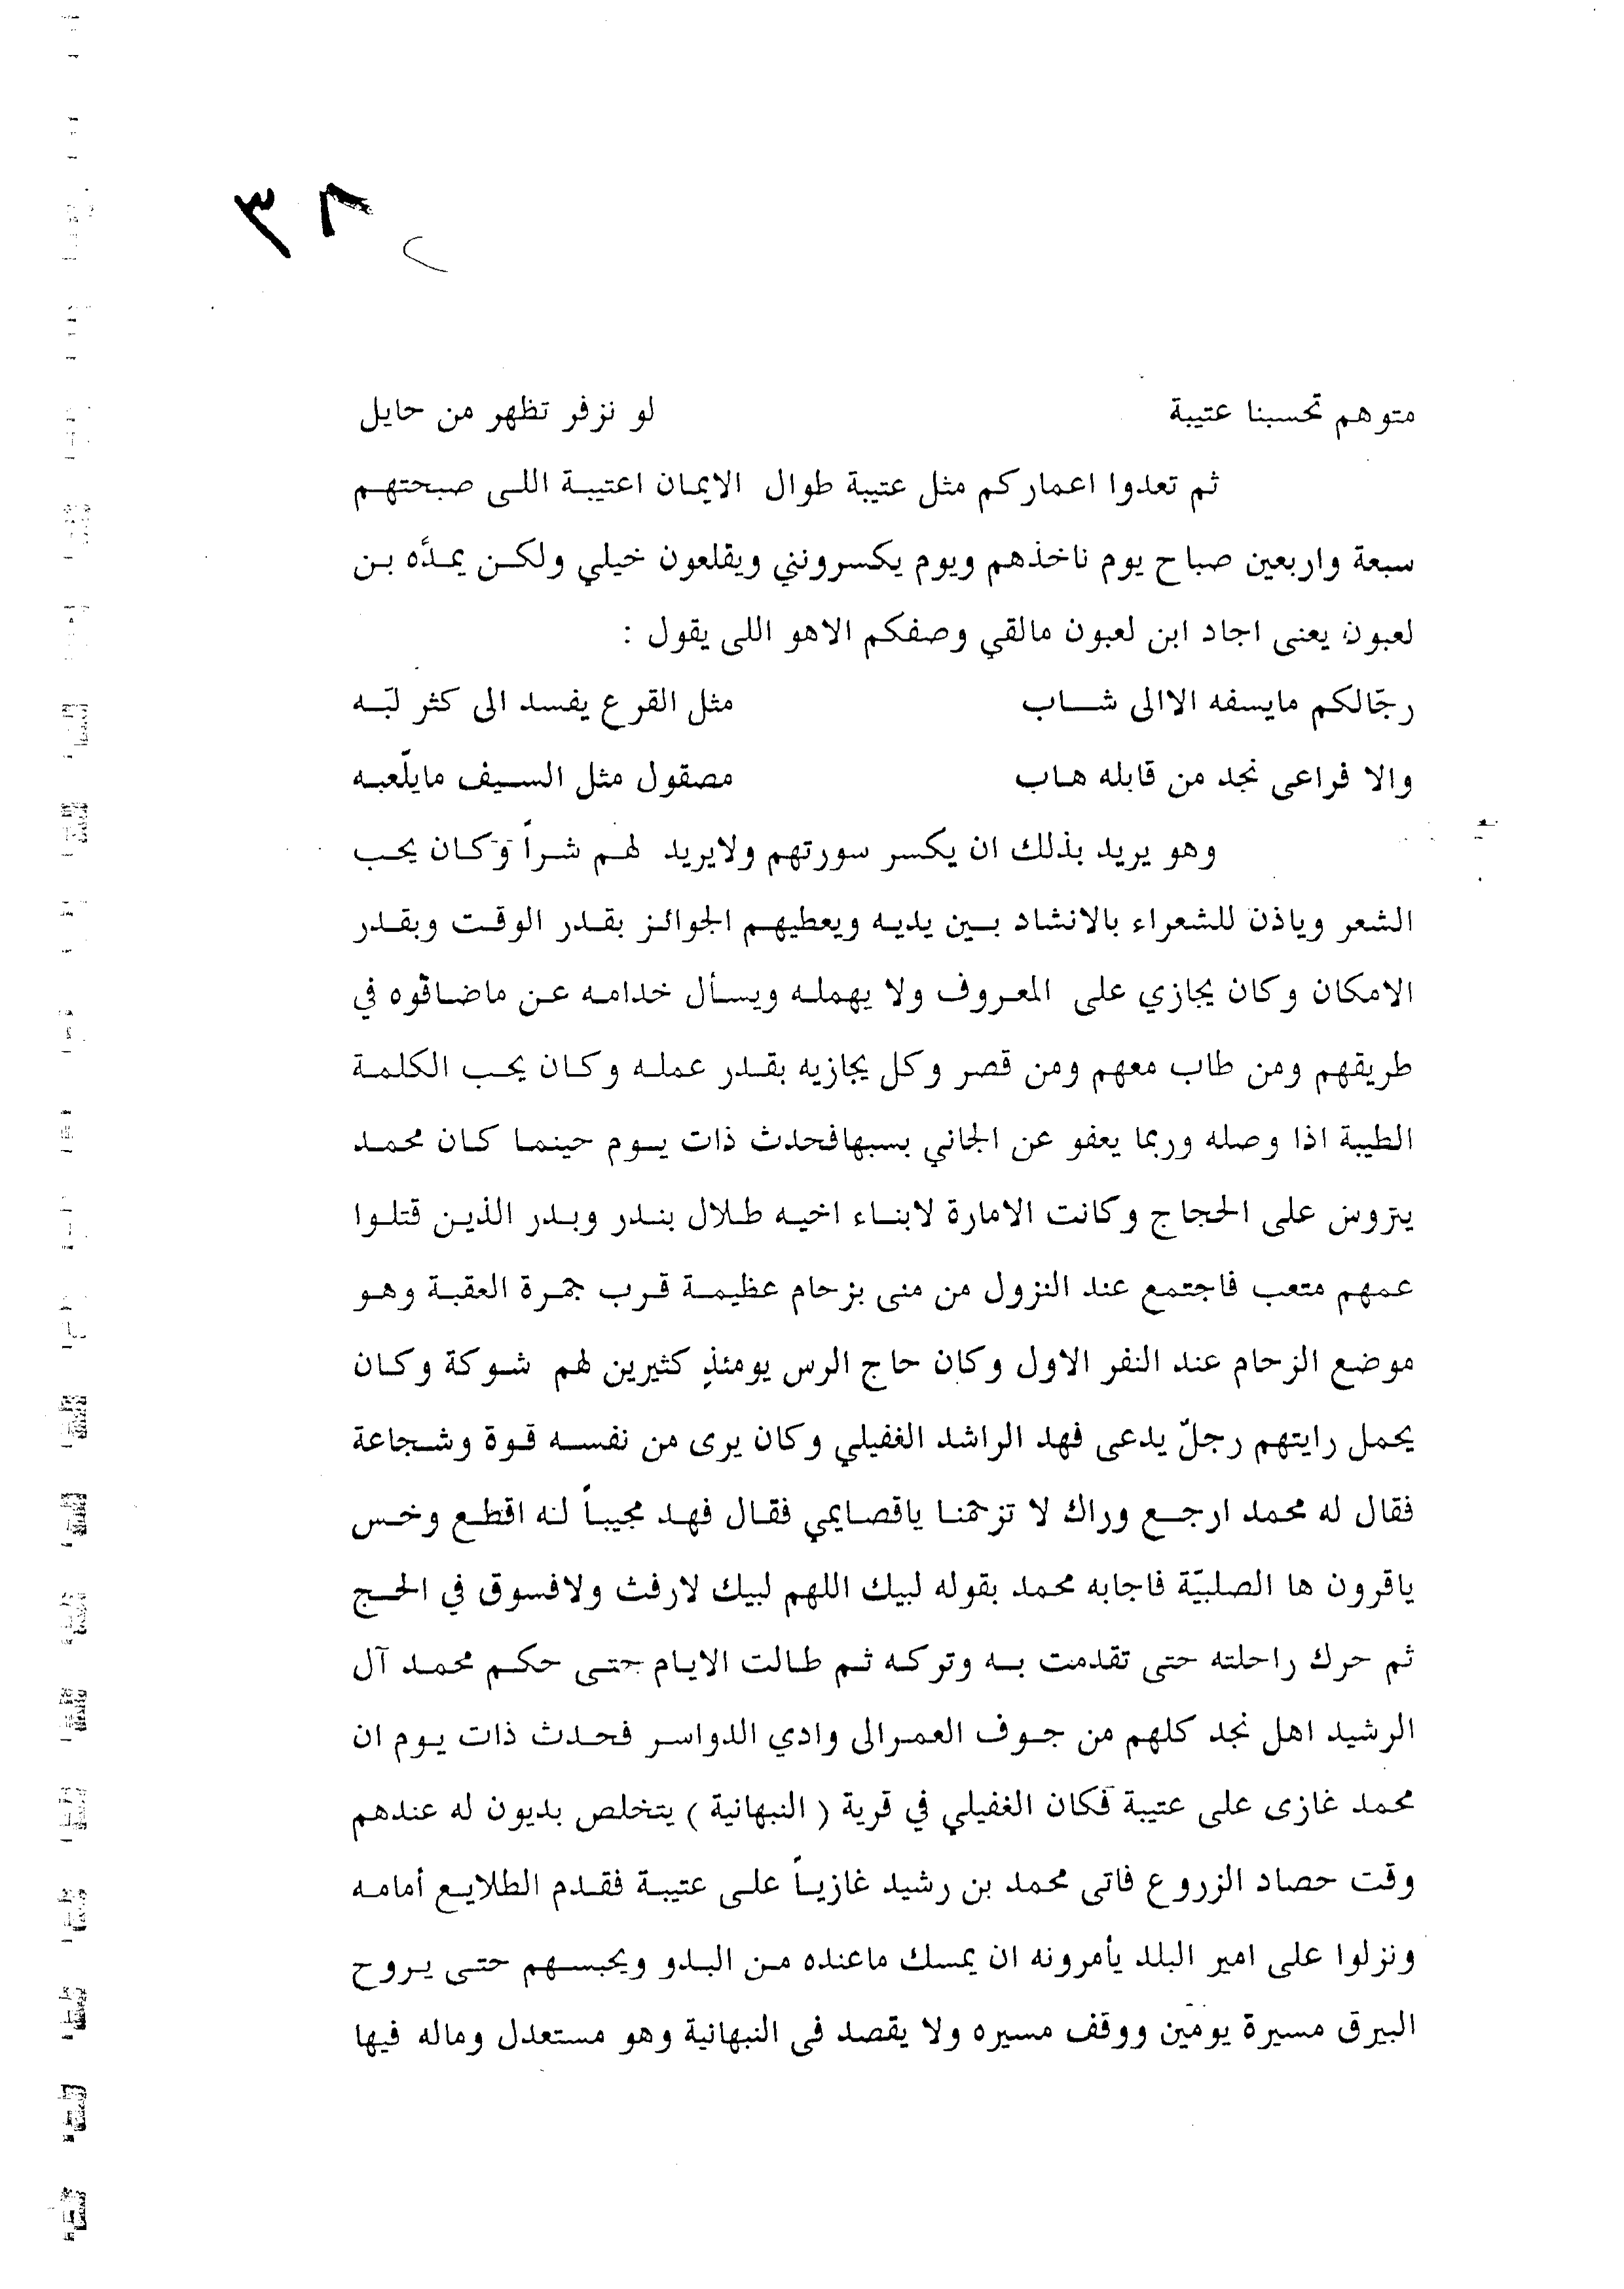 ٣٨
متوهم تحسبنا عتيبة لو نزفر تظهر من حايل
ثم تعدوا اعماركم مثل عتيبة طوال الايمان اعتيبة اللى صبحتهم
سبعة واربعين صباح يوم ناخذهم ويوم يكسرونني ويقلعون خيلي ولكن يمدّه بن
لعبون يعنى اجاد ابن لعبون مالقي وصفكم الاهو اللى يقول :
رجّالكم مايسفه الاالى شاب مثل القرع يفسد الى كثر لبّه
والا فراعى نجد من قابله هاب مصقول مثل السيف مايلّعبه
وهو يريد بذلك ان يكسر سورتهم ولايريد لهم شراً وكان يحب
الشعر وياذن للشعراء بالانشاد بين يديه ويعطيهم الجوائز بقدر الوقت وبقدر
الامكان وكان يجازي على المعروف ولا يهمله ويسأل خدامه عن ماضاقوه في
طريقهم ومن طاب معهم ومن قصر وكل يجازيه بقدر عمله وكان يحب الكلمة
الطيبة اذا وصله وربما يعفو عن الجاني بسبهافحدث ذات يوم حينما كان محمد
يتروس على الحجاج وكانت الامارة لابناء اخيه طلال بندر وبدر الذين قتلوا
عمهم متعب فاجتمع عند النزول من منى بزحام عظيمة قرب جمرة العقبة وهو
موضع الزحام عند النفر الاول وكان حاج الرس يومئذٍ كثيرين لهم شوكة وكان
يحمل رايتهم رجلّ يدعى فهد الراشد الغفيلي وكان يرى من نفسه قوة وشجاعة
فقال له محمد ارجع وراك لا تزحمنا ياقصايمي فقال فهد مجيباً له اقطع وخس
ياقرون ها الصلبيّة فاجابه محمد بقوله لبيك اللهم لبيك لارفث ولافسوق في الحج
ثم حرك راحلته حتى تقدمت به وتركه ثم طالت الايام حتى حكم محمد آل
الرشيد اهل نجد كلهم من جوف العمرالى وادي الدواسر فحدث ذات يوم ان
محمد غازى على عتيبة فكان الغفيلي في قرية ( النبهانية ) يتخلص بديون له عندهم
وقت حصاد الزروع فاتى محمد بن رشيد غازياً على عتيبة فقدم الطلايع أمامه
ونزلوا على امير البلد يأمرونه ان يمسك ماعنده من البدو ويحبسهم حتى يروح
البيرق مسيرة يومين ووقف مسيره ولا يقصد فى النبهانية وهو مستعدل وماله فيها